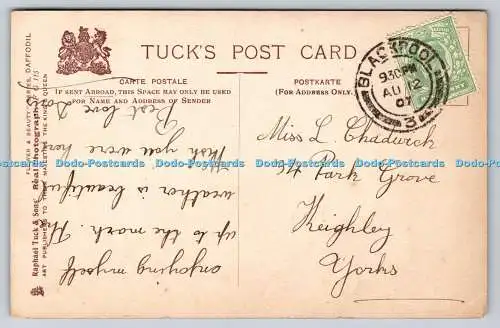 TUCK'S POST CARD
CARTE POSTALE
IF SENT ABROAD, THIS SPACE MAY ONLY BE USED
FOR NAME AND ADDRESS OF SENDER
POSTKARTE
(FOR ADDRESS ONLY.
BLACKPOOL
930PM
AU 12
07
3
enjoying myself
up to the mark. The
weather is beautiful
Wish you were here
Best love
Miss L. Chadwick
Park Grove
Keighley
Yorks
FLOWER & BEAUTY SERIES, DAFFODIL
Raphael Tuck & Sons' Real Photograph
ART PUBLISHERS TO THEIR MAJESTIES THE KING & QUEEN
Dodo-Postcards Dodo-Postcards Dodo-Postcards Dodo-Postcards Dodo-Postcards Dodo-Postcards